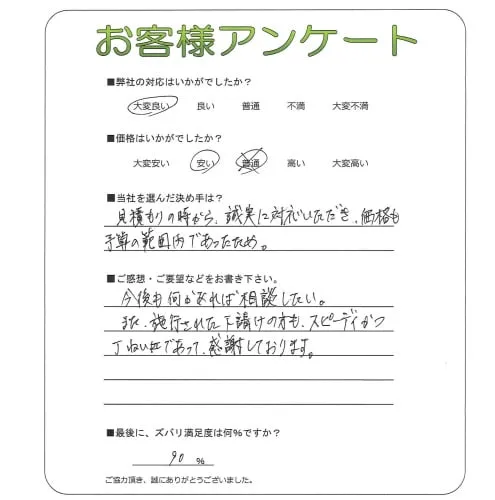 お客様アンケート
■弊社の対応はいかがでしたか?
大変良い 良い 普通 不満 大変不満
■価格はいかがでしたか?
大変安い 安い 普通 高い 大変高い
■当社を選んだ決め手は?
見積もりの時から、誠実に対応いただき、価格も
予算の範囲内であったため。
■ご感想・ご要望などをお書き下さい。
今後も何かあれば相談したい。
また、施行された下請けの方も、スピーディかつ
丁ねいであって、感謝しております。
■最後に、ズバリ満足度は何%ですか?
90 %
ご協力頂き、誠にありがとうございました。